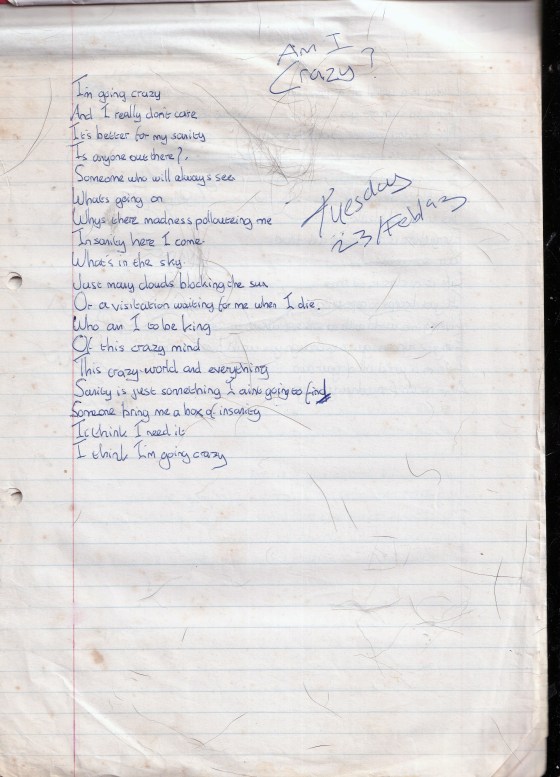 Am I
Crazy?
I'm going crazy
And I really don't care
It's better for my sanity
Is anyone out there?.
Someone who will always see
Whats going on
Whys there madness pollouteing me
Tuesday
23/Feb/93
Insanity here I come.
What's in the sky.
Just many clouds blocking the sun
Or a visitation waiting for me when I die.
Who am I to be king
Of this crazy mind
This crazy world and everything
Sanity is just something I aint going to find
Someone bring me a box of insanity
I think I need it
I think I'm going crazy